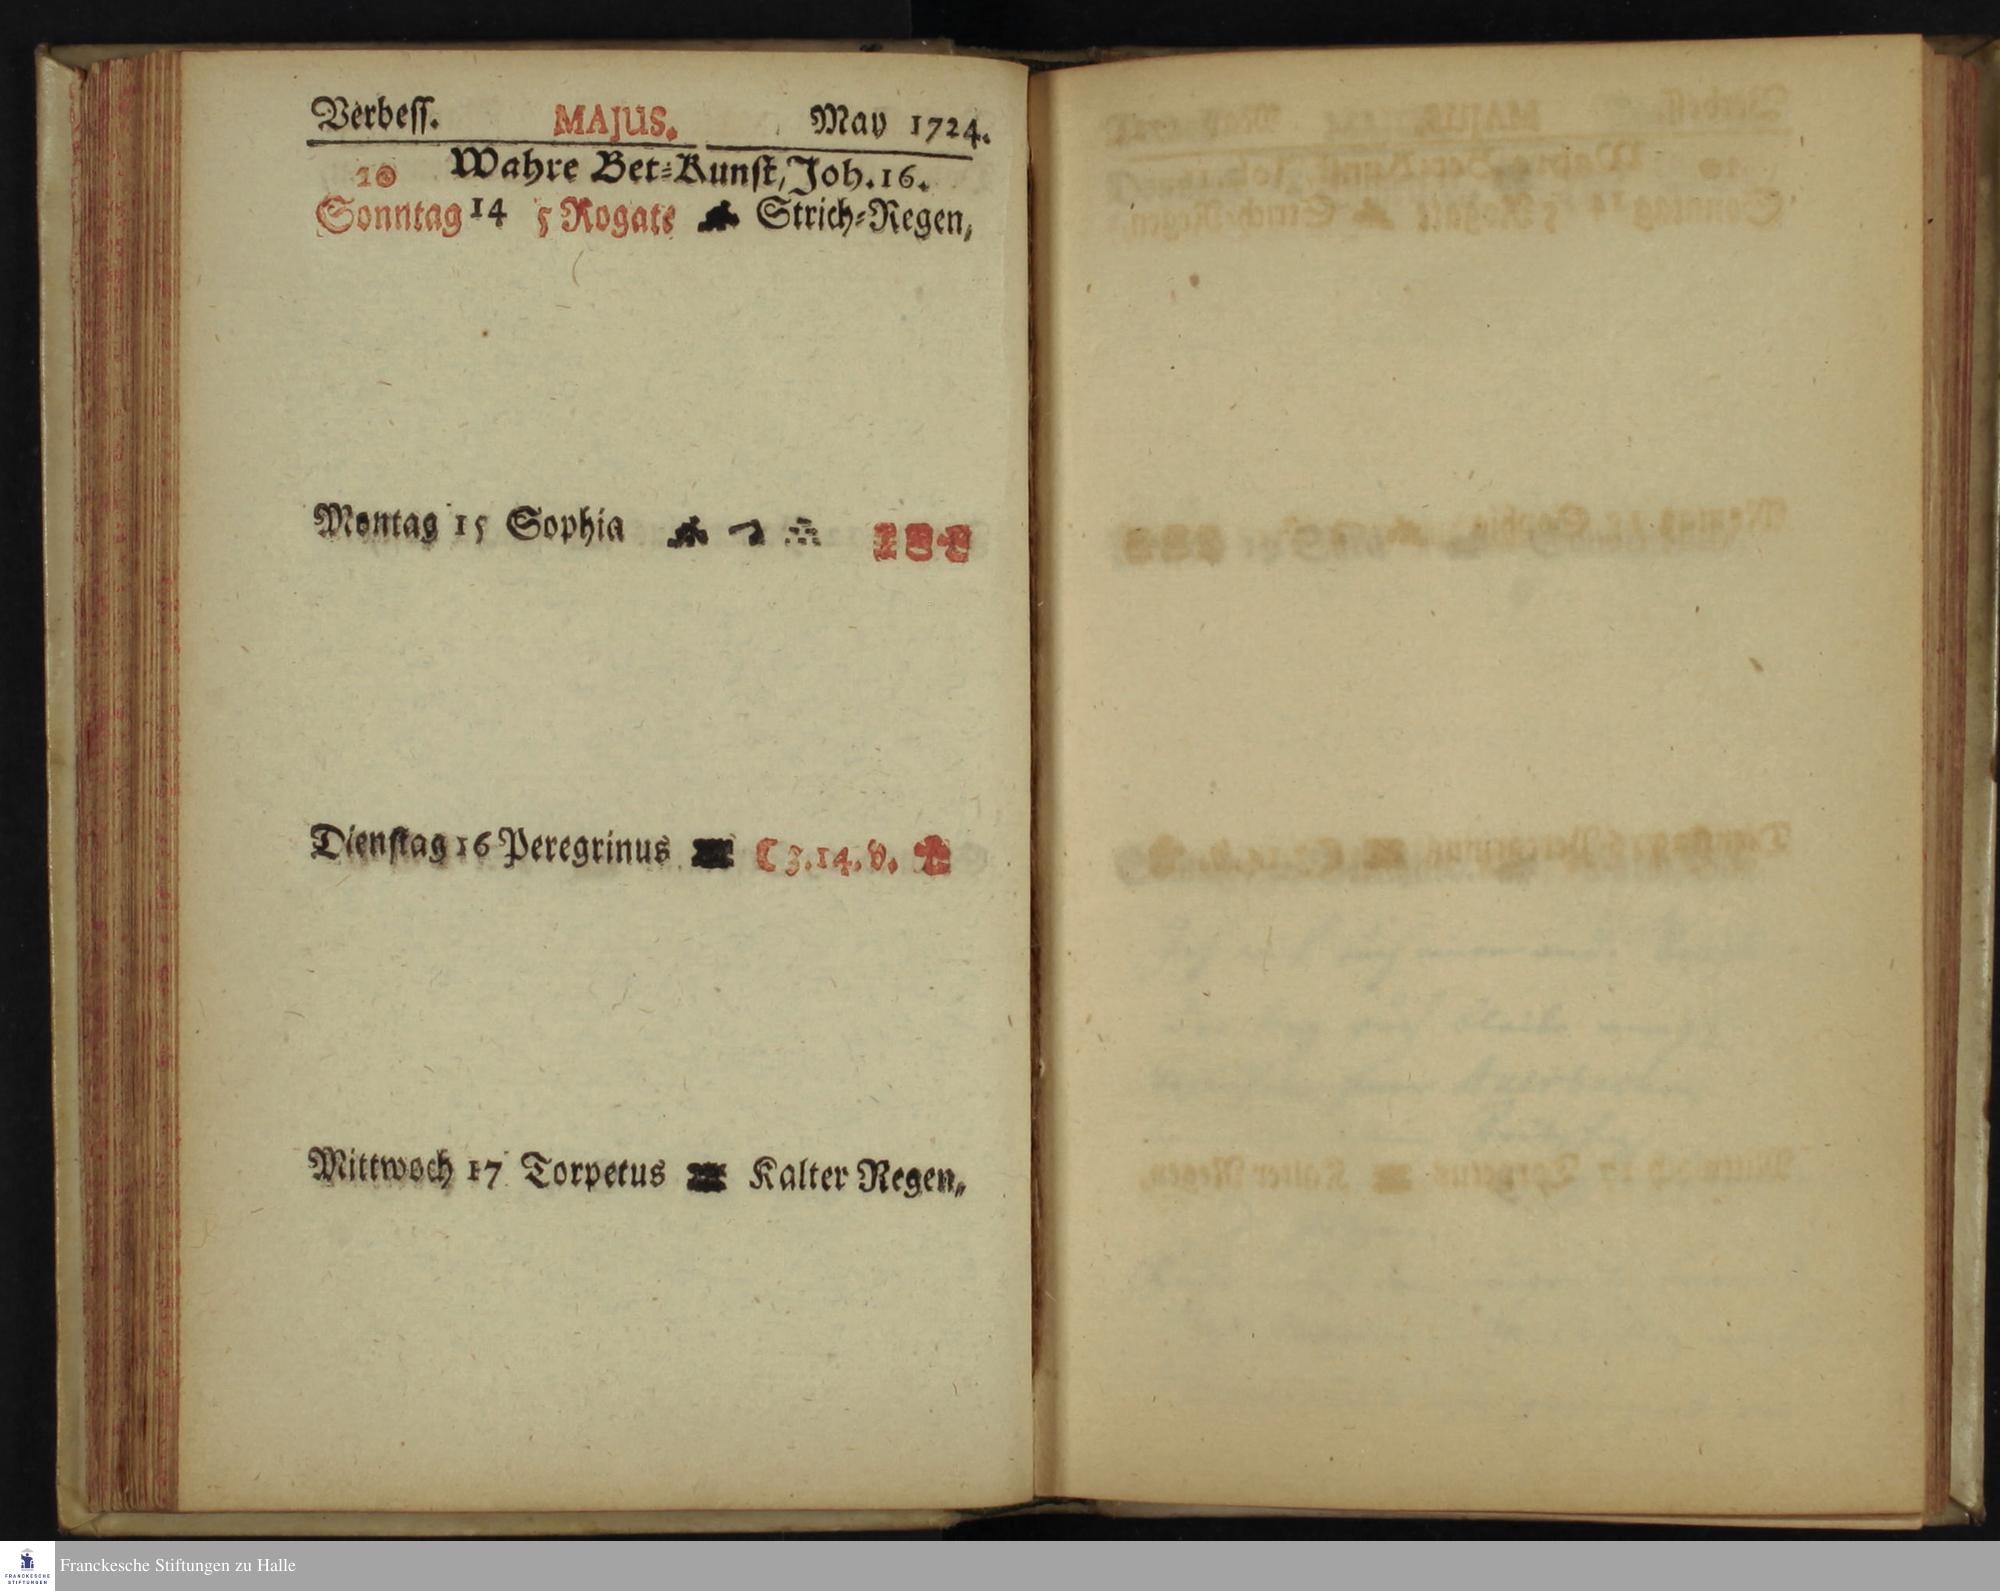 Verbeſſ. MAJUS. May 1724.
20 Wahre Bet=Kunſt, Joh. 16.
Sonntag 14 5 Rogate Strich=Regen,
Montag 15 Sophia
Dienſtag 16 Peregrinus ☾ 3.14. v.
Mittwoch 17 Torpetus Kalter Regen,
Franckesche Stiftungen zu Halle
FRANCKESCHE
STIFTUNGEN